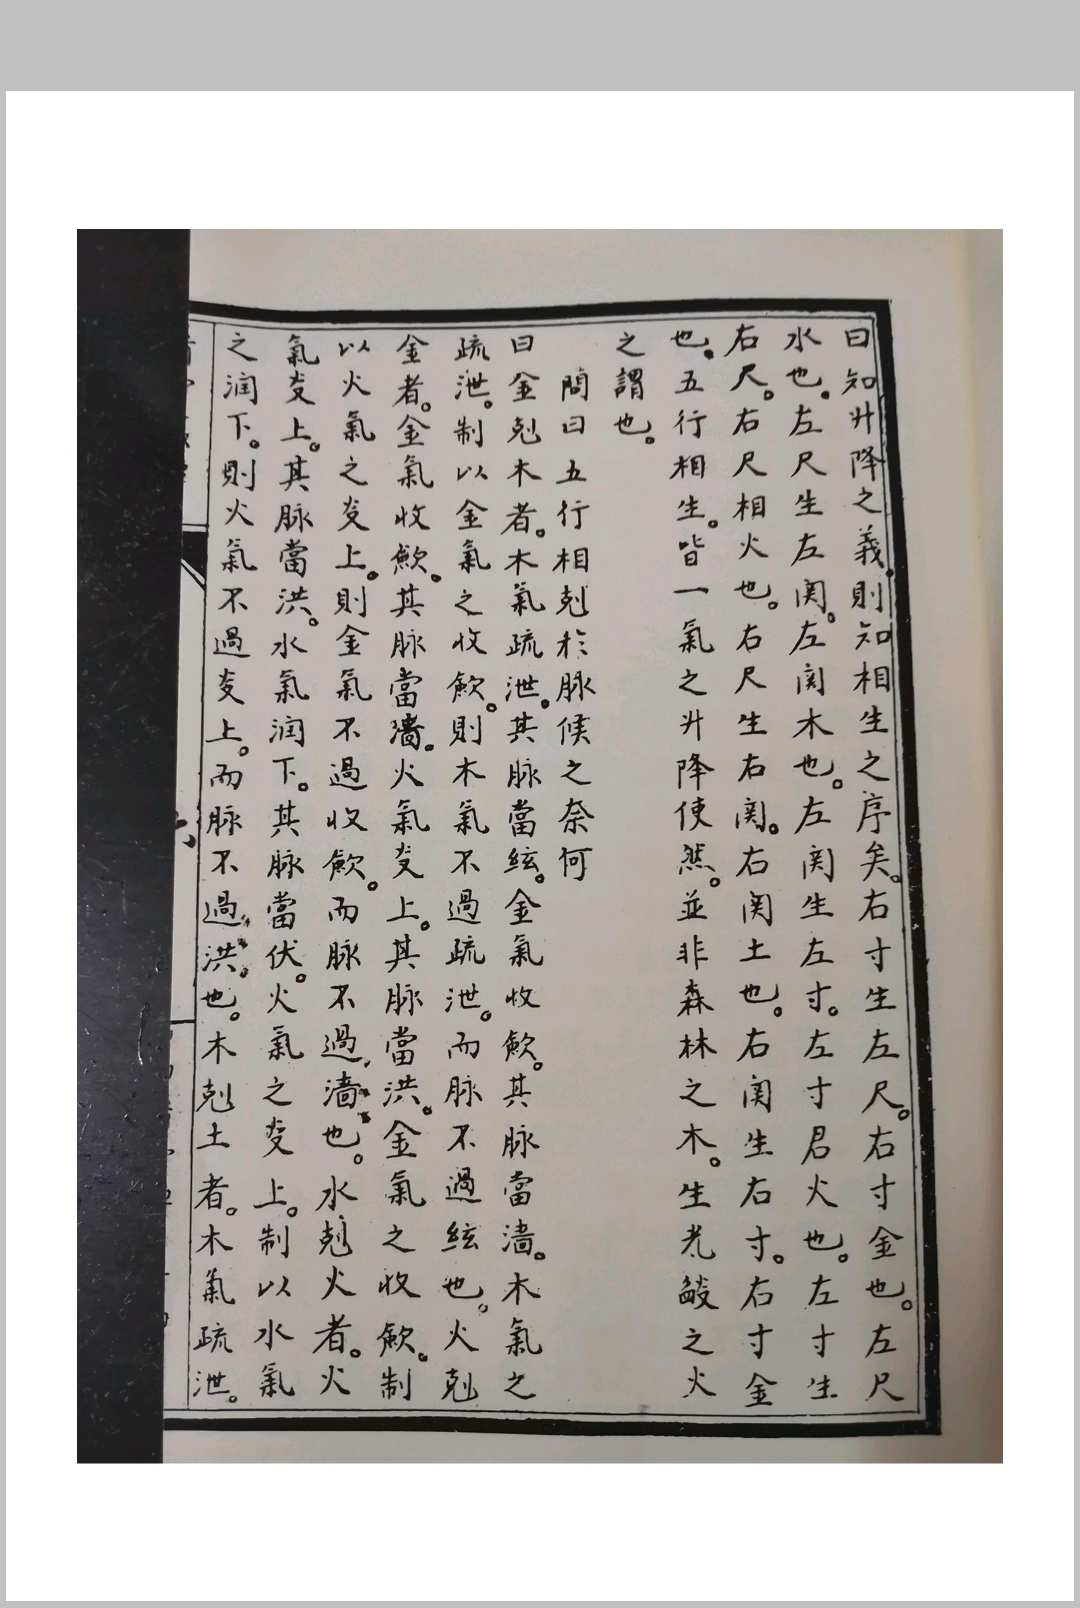 曰知升降之義。則知相生之序矣。右寸生左尺。右寸金也。左尺
水也。左尺生左関。左関木也。左関生左寸。左寸君火也。左寸生
右尺。右尺相火也。右尺生右関。右関土也。右関生右寸。右寸金
也。五行相生。皆一氣之升降使然。並非森林之木。生光燄之火
之謂也。
問曰五行相剋於脉候之奈何
曰金剋木者。木氣疏泄。其脉當絃。金氣收歛。其脉當濇。木氣之
疏泄。制以金氣之收歛。則木氣不過疏泄。而脉不過絃也。火剋
金者。金氣收歛。其脉當濇。火氣炎上。其脉當洪。金氣之收歛。制
以火氣之炎上。則金氣不過收歛。而脉不過濇也。水剋火者。火
氣炎上。其脉當洪。水氣润下。其脉當伏。火氣之炎上。制以水氣
之润下。則火氣不過炎上。而脉不過洪也。木剋土者。木氣疏泄。